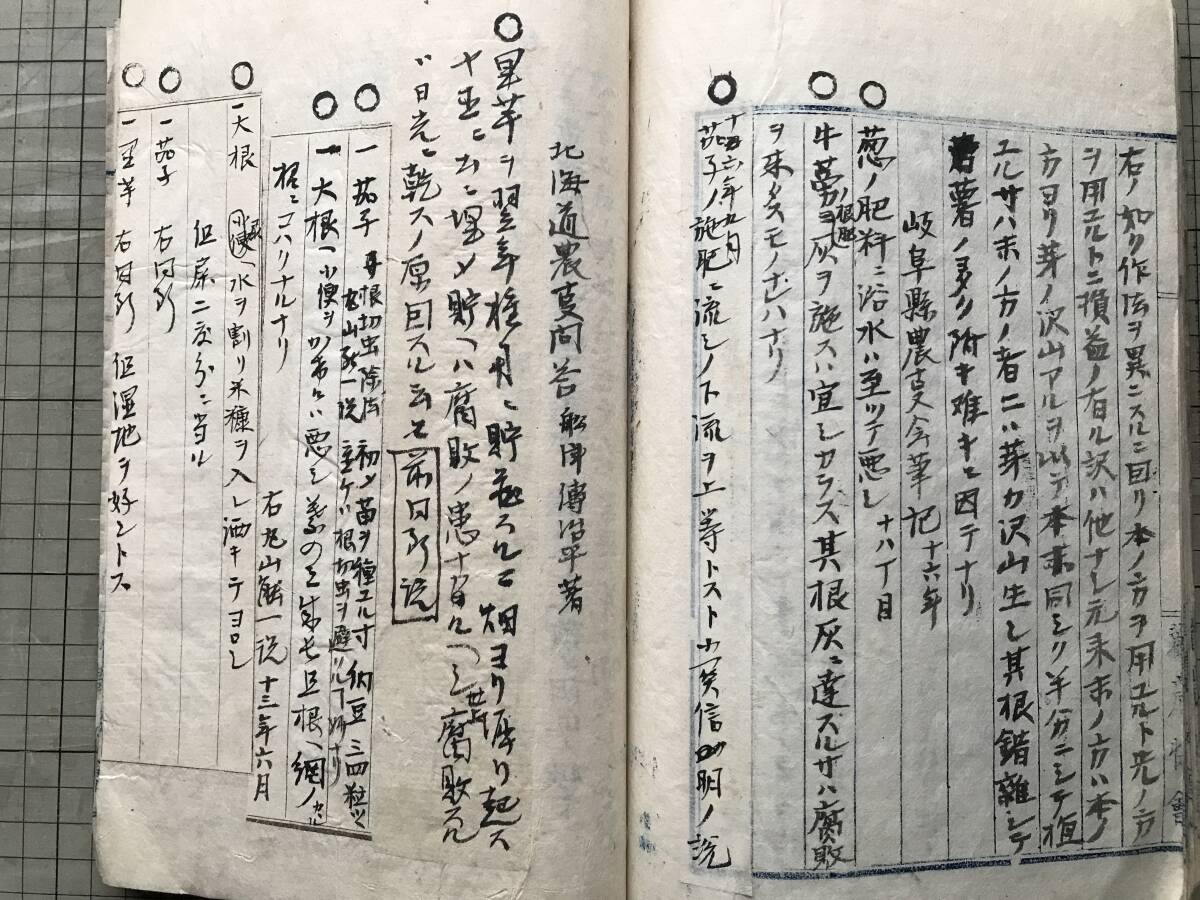 右ノ如ク作法ヲ異ニスルニ因リ本ノ方ヲ用ユルト先ノ方
ヲ用ユルトニ損益ノ有ル訳ハ他ナシ元来末ノ方ハ本ノ
方ヨリ芽ノ沢山アルヲ以テ本末同シク半分ニシテ植
ユルサハ末ノ方ノ者ニハ芽カ沢山生シ其根錯雑シテ
薯ノ多ク附キ難キニ因テナリ
岐阜縣農談会筆記 十六年
葱ノ肥料ニ浴水ハ至ツテ悪シ 十八丁目
牛蒡ヲ灰ヲ施スハ宜シカラス其根灰ニ達ズルサハ腐敗
ヲ来タスモノナレハナリ
十六年九月
茄子ノ施肥ニ流シノ下流ヲ上等トスト 信明ノ説
北海道農事問答 船津傳治平著
里芋ヲ翌年種用ニ貯フルニ畑ヨリ堀リ起ス
ヤ直ニ土ニ埋メ貯ヘハ腐敗ノ患ナシ
日光ニ乾スノ原因スルニ云々 前同断説
一 茄子 根切虫除法 初メ苗ヲ種ユル寸納豆三四粒ツヽ
根切虫ヲ避ル
一 大根ヘ小便ヲ 悪シ 且根ヘ網ノ
コハリナルナリ
右丸山 一説 十三年六月
一 大根 水ヲ割リ米糠ヲ入レ洒キテヨロシ
但尿二度分ニ当ル
一 茄子 右同断
一 里芋 右同断 但湿地ヲ好ムトス